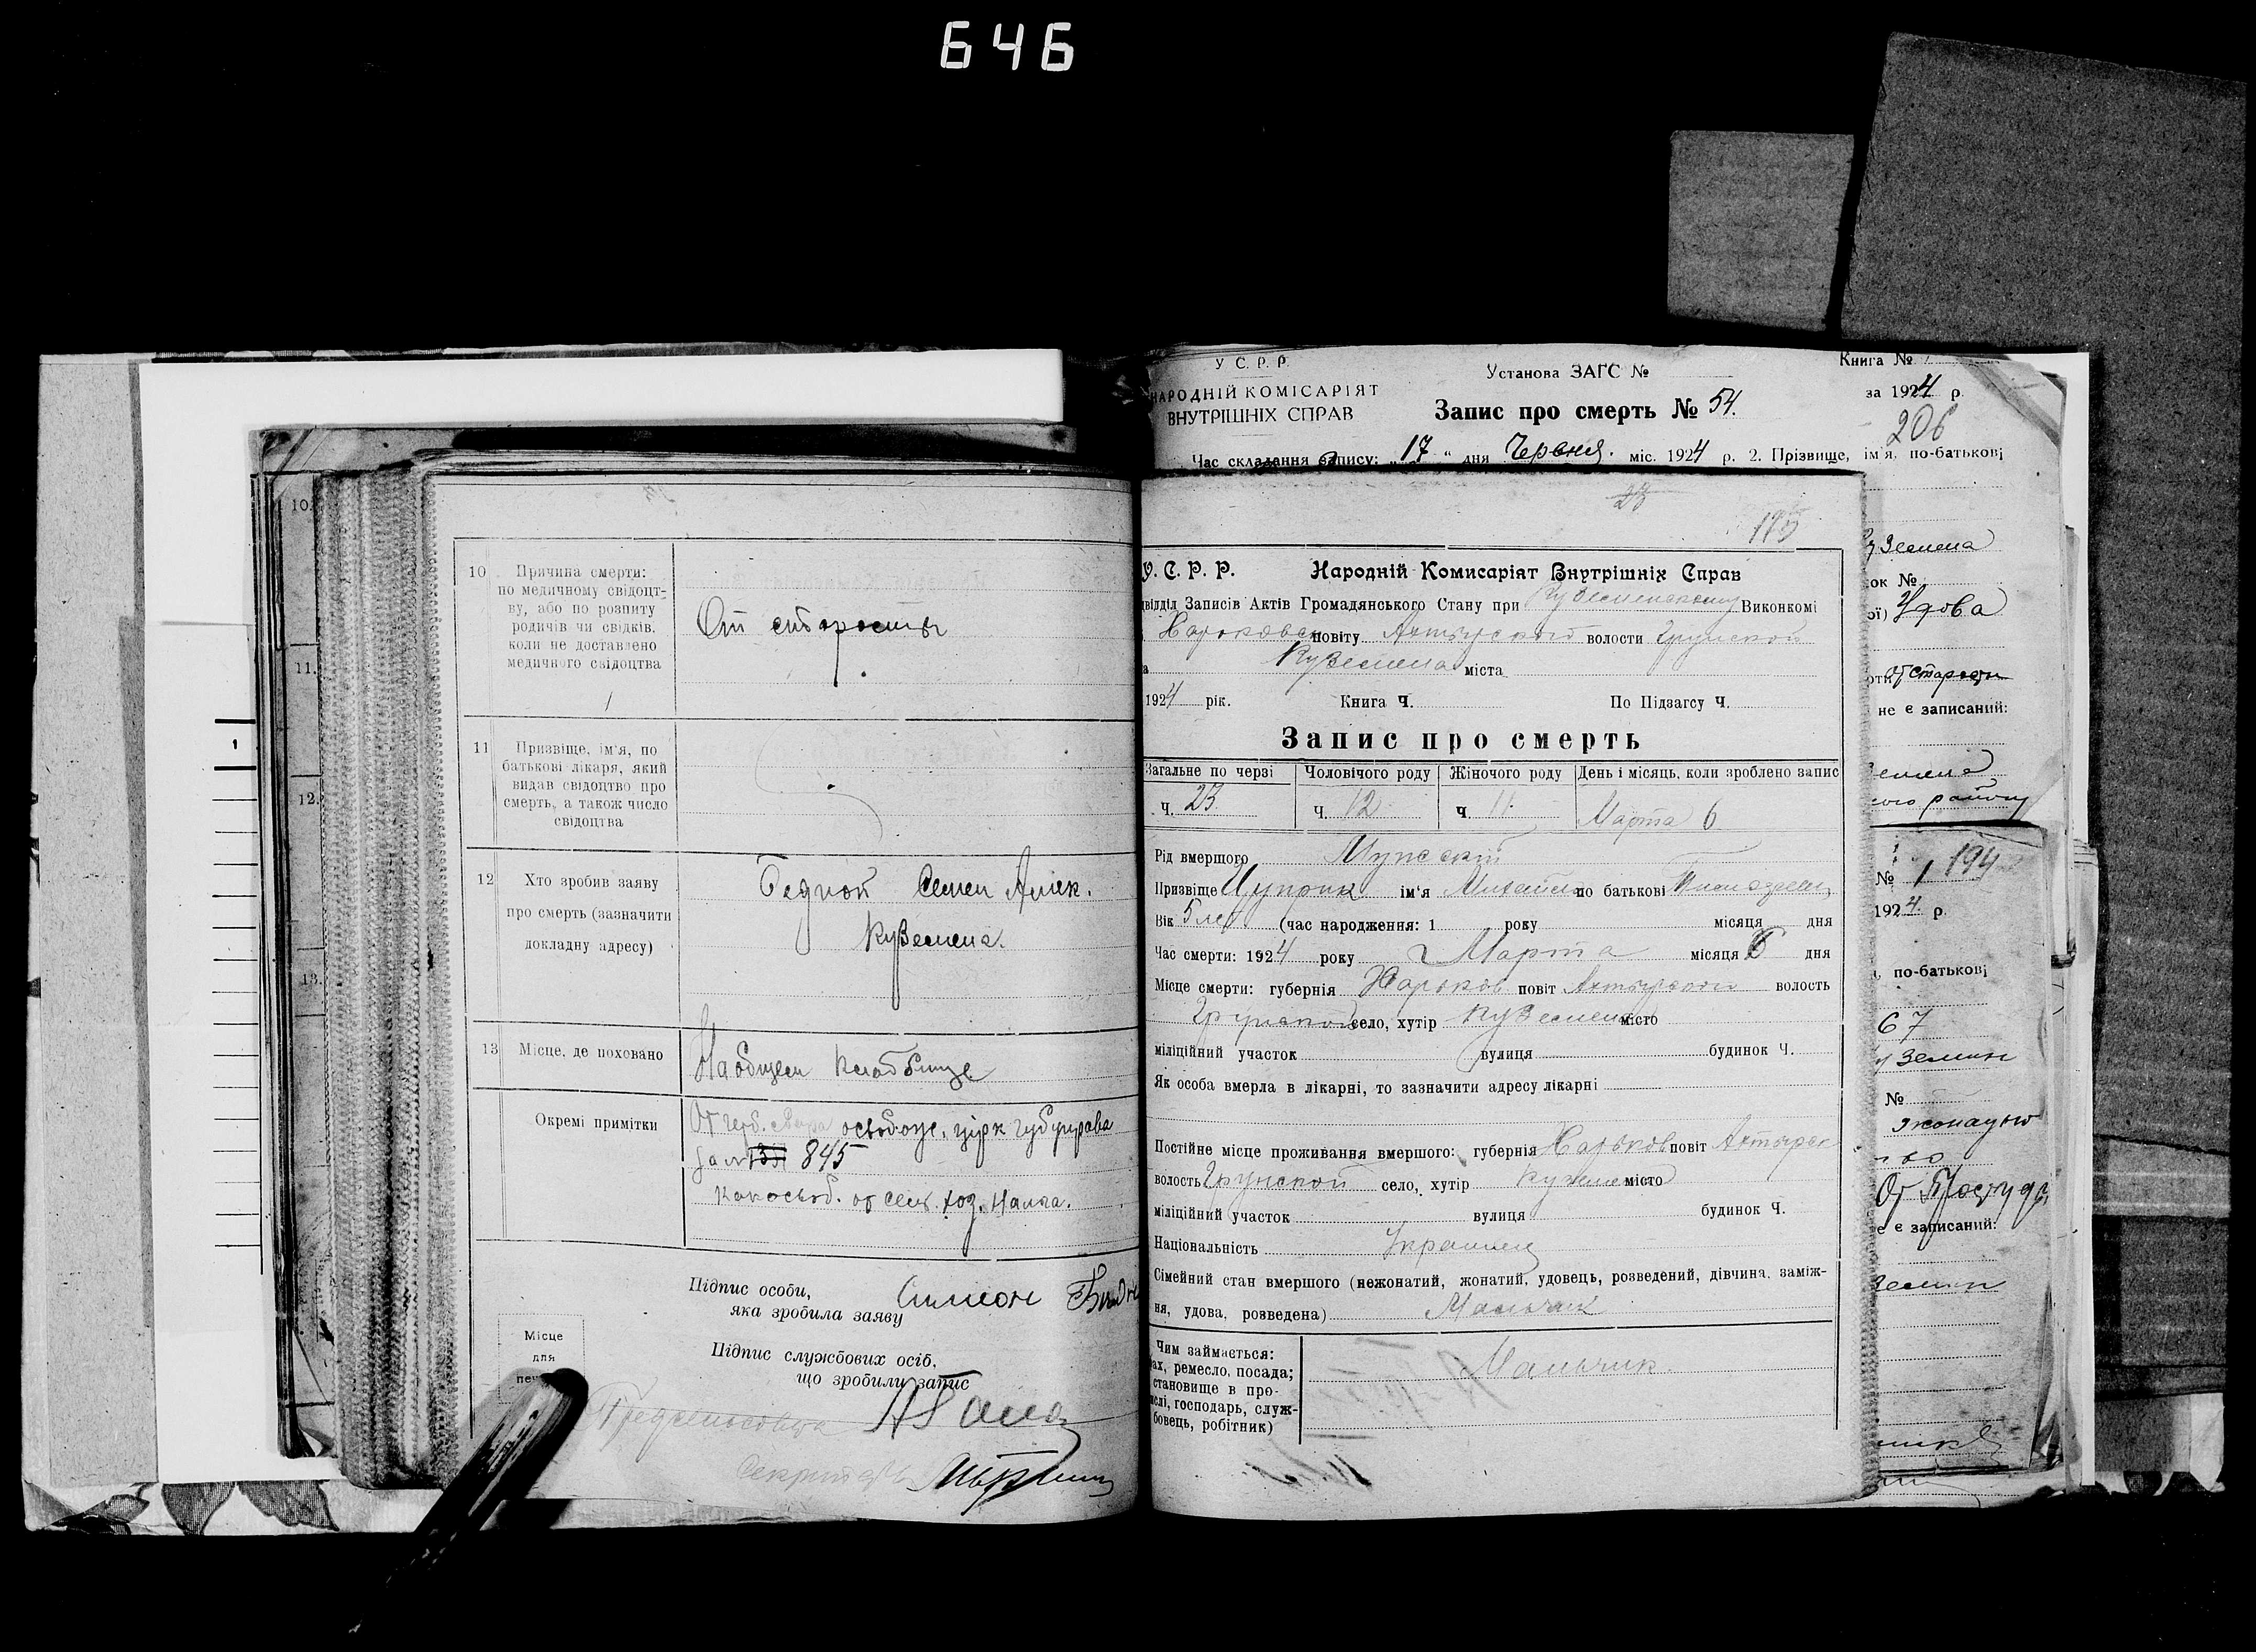 646
10
Причина смерти:
по медичному свідоцт-
ву, або по розпиту
родичів чи свідків,
коли не доставлено
медичного свідоцтва
От старости
11
Призвіще, ім'я, по
батькові лікаря, який
видав свідоцтво про
смерть, а також число
свідоцтва
12
Хто зробив заяву
про смерть (зазначити
докладну адресу)
Бедной Семен Алек.
Куземена.
13
Місце, де поховано
На общем кладбище
Окремі примітки
От герб. сбора освобожд. цирк
845
Підпис особи,
яка зробила заяву
Симеон
Місце
для
Підпис службових осіб,
що зробили запис
Секретарь
10.
11.
12.
13.
1
У С. Р. Р.
НАРОДНІЙ КОМІСАРІЯТ
ВНУТРІШНІХ СПРАВ
Установа ЗАГС №
Запис про смерть № 54.
Книга №
за 1924 р.
206
Час складання запису: „17“ дня Червня. міс. 1924 р. 2. Прізвище, ім'я, по-батькові
23
175
У. С. Р. Р. Народній Комисаріят Внутрішніх Справ
Записів Актів Громадянського Стану при Виконкомі
Харьковск повіту Ахтырского волости Грунской
Куземена міста
1924 рік. Книга Ч. По Підзагсу Ч.
Запис про смерть
Загальне по черзі Чоловічого роду Жіночого роду День і місяць, коли зроблено запис
Ч. 23 Ч. 12 Ч. 11 Марта 6
Рід вмершого Мужской
Призвіще Цуприк ім'я Михаил по батькові
Вік 5 лет (час народження: 1 року місяця дня
Час смерти: 1924 року Марта місяця 6 дня
Місце смерти: губернія Харьков повіт Ахтырской волость
Грунской село, хутір Куземена місто
міліційний участок вулиця будинок Ч.
Як особа вмерла в лікарні, то зазначити адресу лікарні
Постійне місце проживання вмершого: губернія Харьков повіт Ахтырск
волость Грунской село, хутір Куземена місто
міліційний участок вулиця будинок Ч.
Національність Украинец
Сімейний стан вмершого (нежонатий, жонатий, удовець, розведений, дівчина, заміж-
ня, удова, розведена) Мальчик
Чим займається:
ах, ремесло, посада;
становище в про-
слі, господарь, служ-
бовець, робітник)
Мальчик
Земена
ок №
ої) Удова
не є записаний:
№ 1 194
1924 р.
по-батькові
67
№
От Простуды
е є записаний: